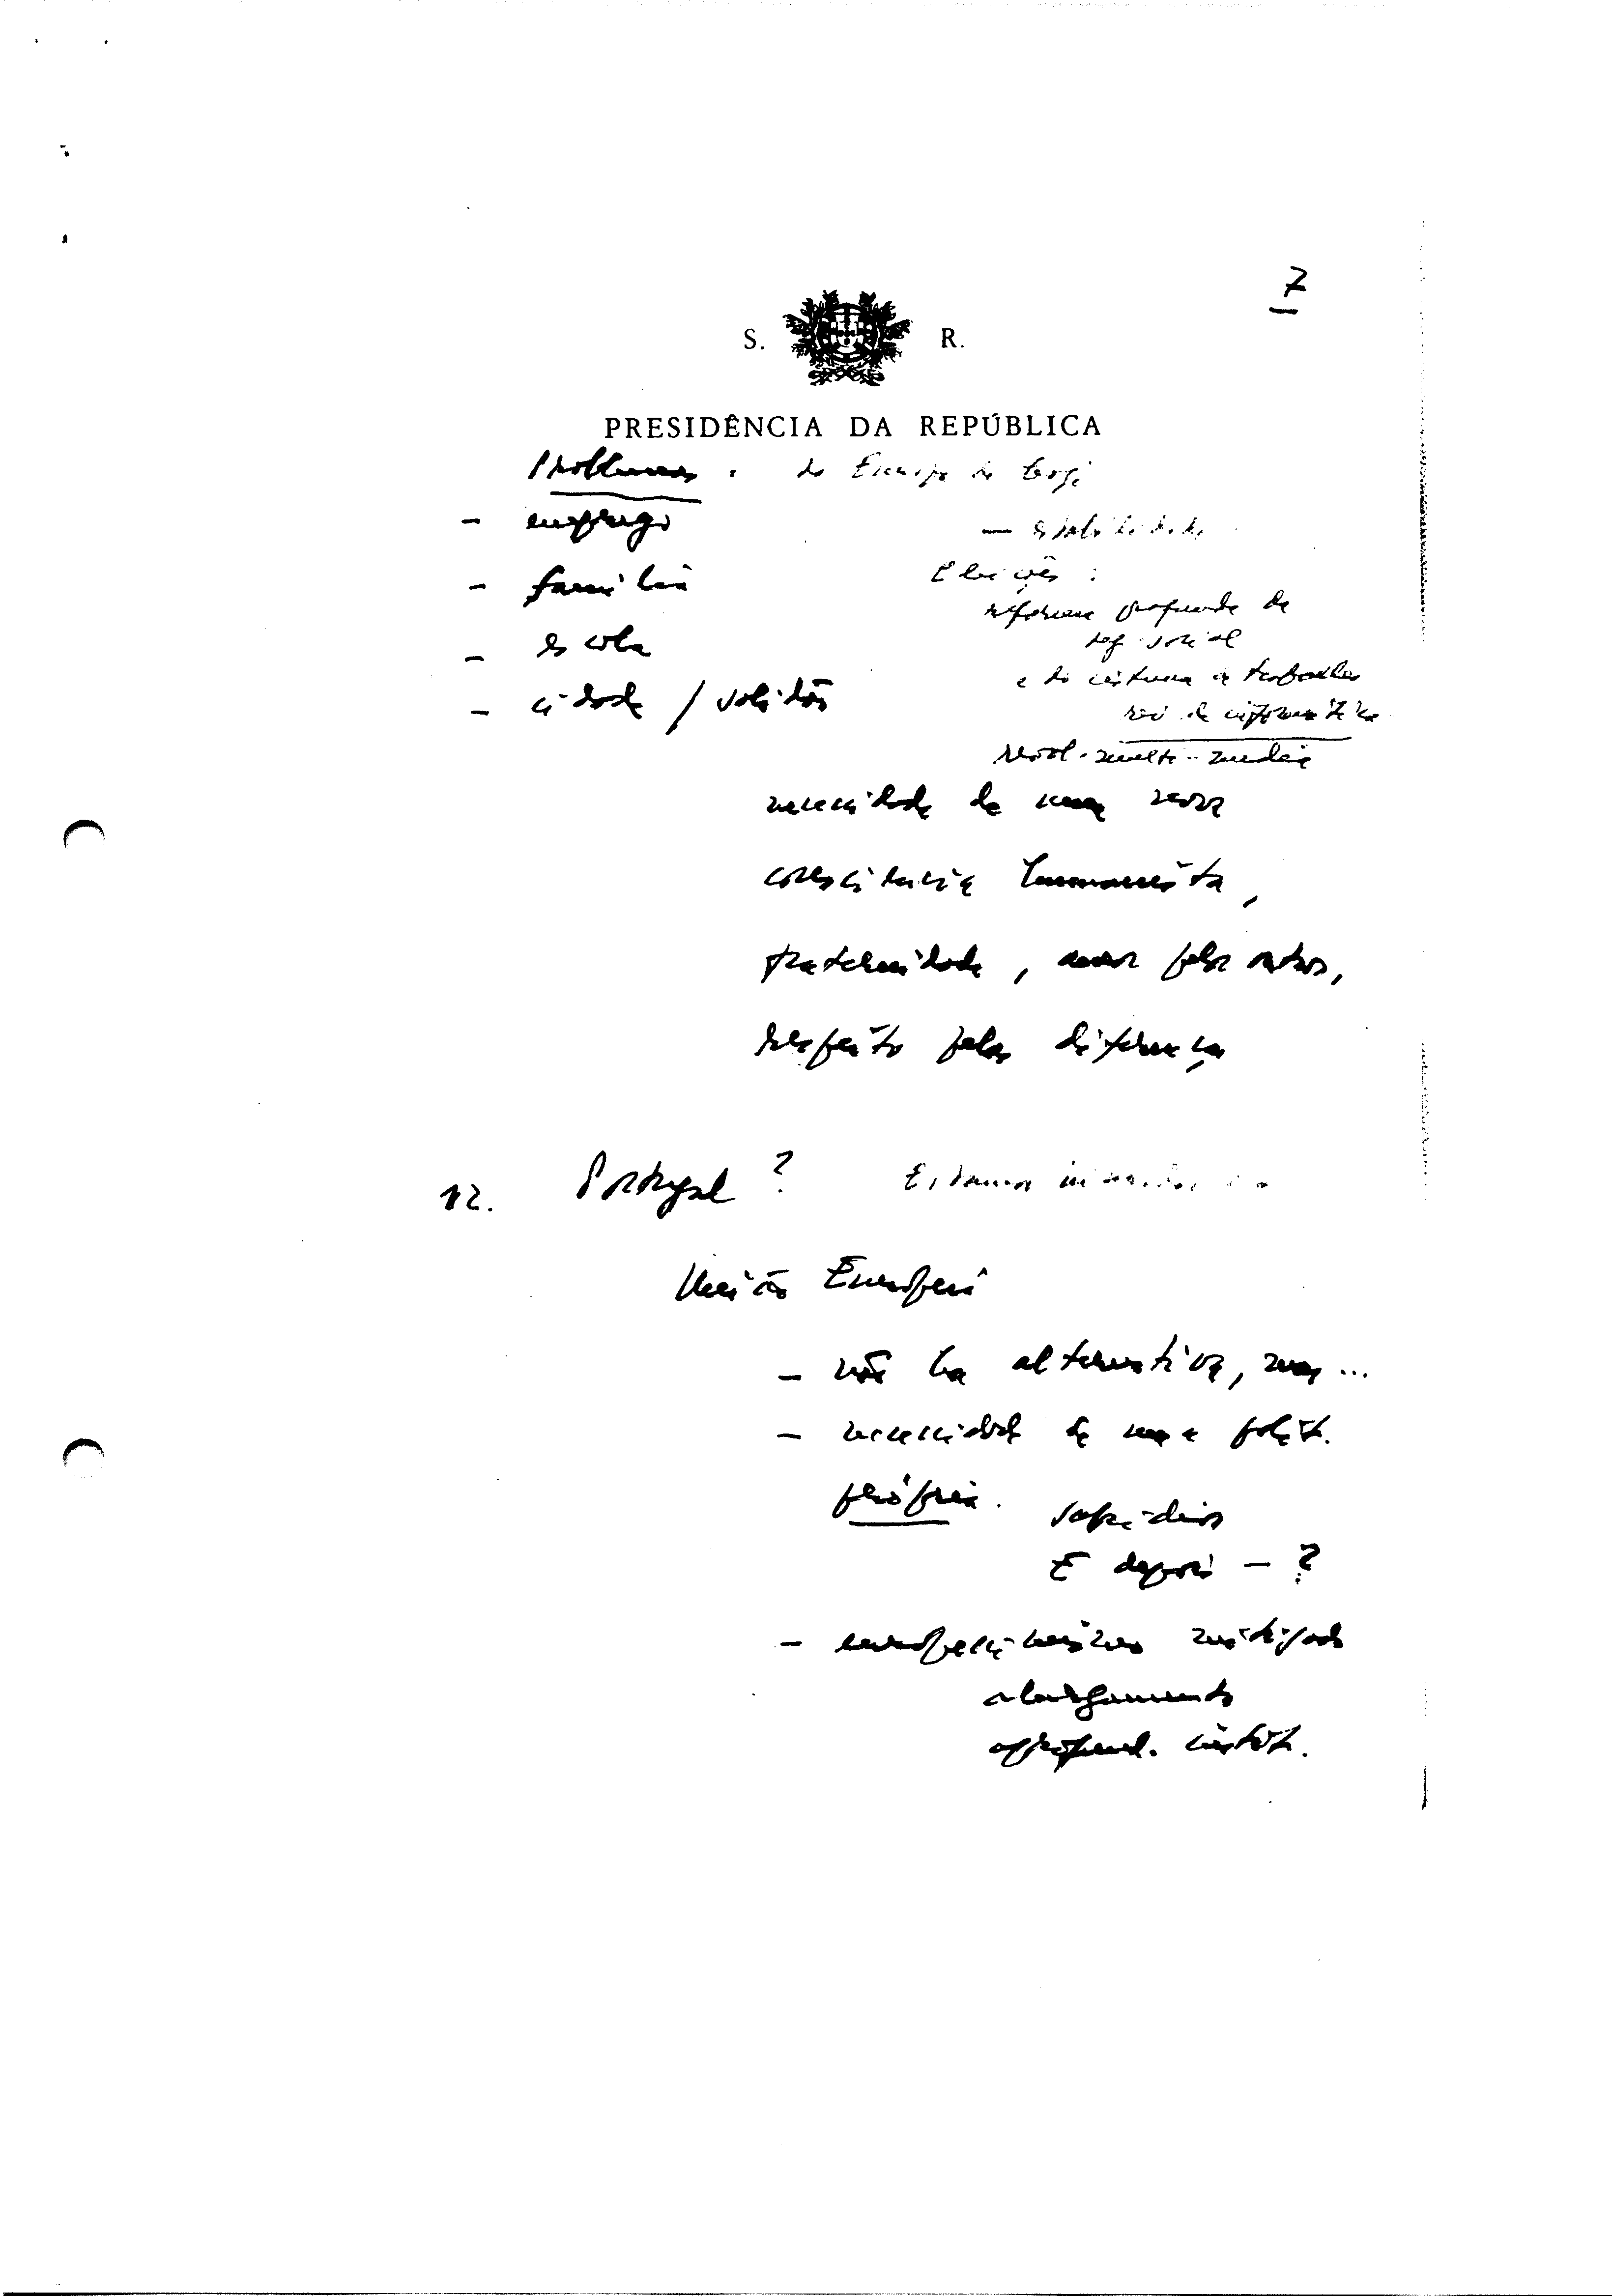 7
S. R.
PRESIDÊNCIA DA REPÚBLICA
Problemas: da Europa de hoje
- emprego
- estabilidade
- família
Eleições:
reforma profunda da
- escola
seg. social
e do sistema de trabalho
- cidade / solidão
rev. da informática
revol. multi-media
necessidade de uma nova
consciência humanista,
fraternidade, amor pelos outros,
respeito pelas diferenças
12. Portugal? Estamos
União Europeia
- não há alternativa, mas...
- necessidade de uma polít.
própria.
E depois - ?
- europeísmo mitigado
alargamento
aprofund. instit.